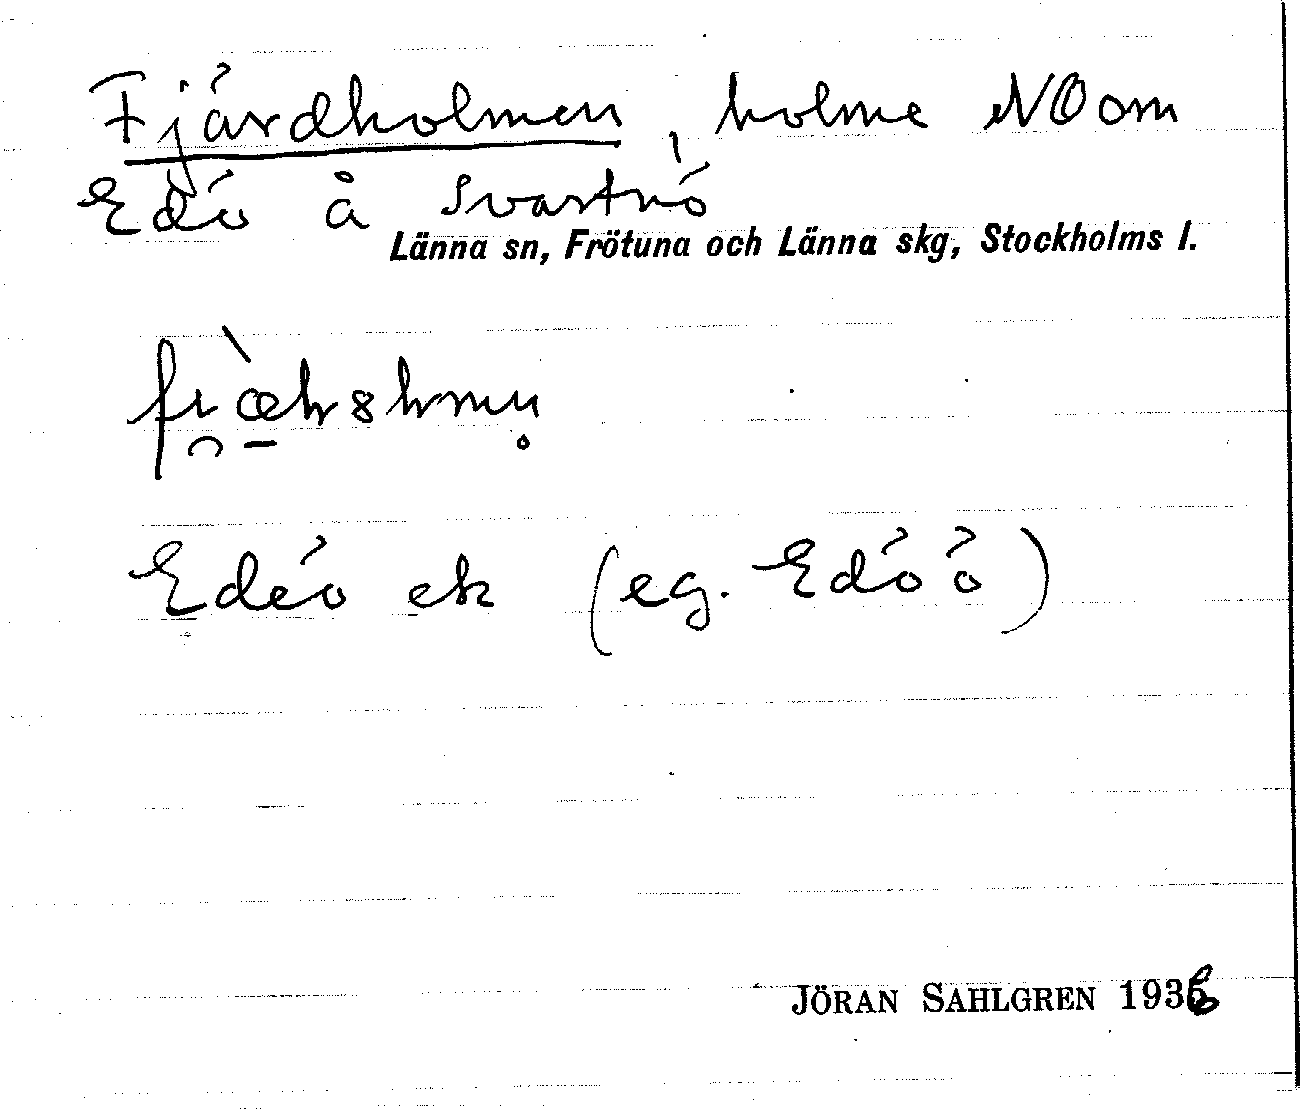 Fjärdholmen, holme NO om
Edö å Svartnö
Länna sn, Frötuna och Länna skg, Stockholms l.
Edeö ek (eg. Edö ö)
JÖRAN SAHLGREN 1936